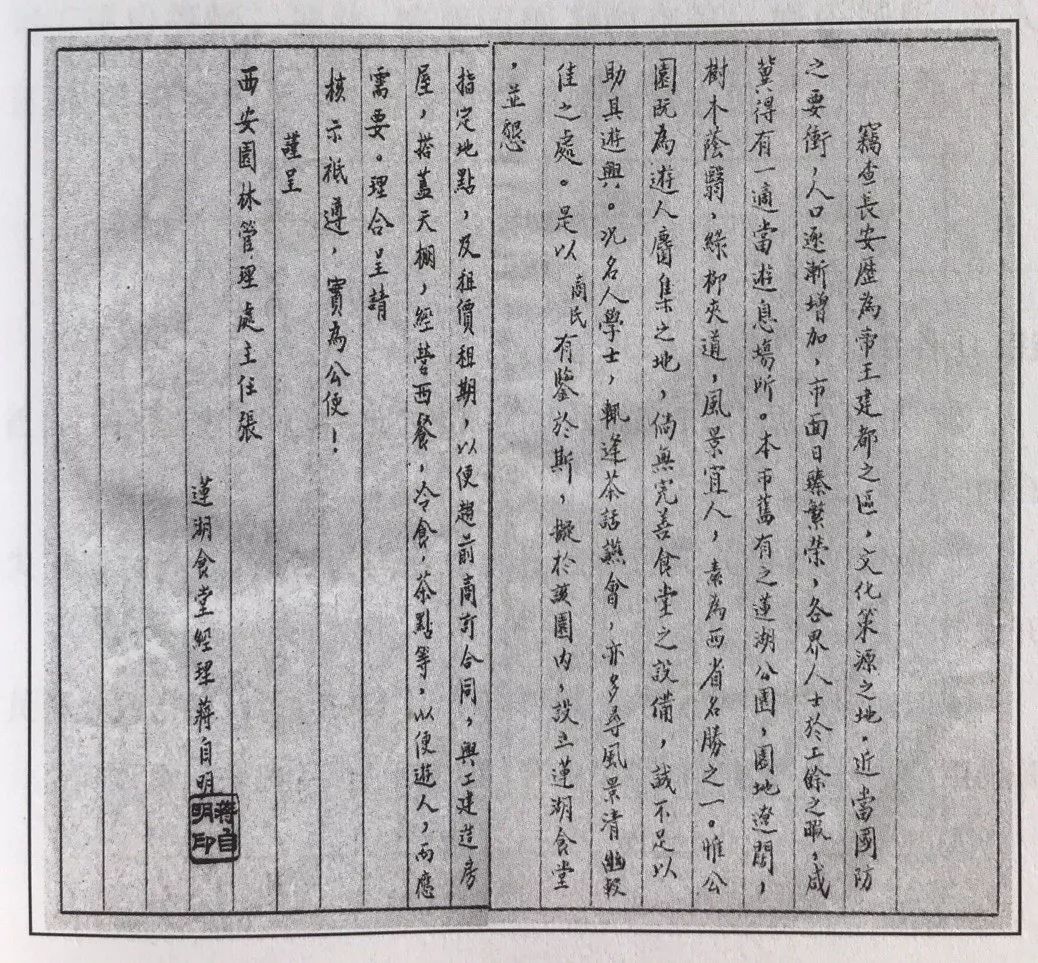 竊查長安歷為帝王建都之區，文化策源之地，近當國防
之要衝，人口逐漸增加，市面日臻繁榮，各界人士於工餘之暇，咸
冀得有一適當遊息場所。本市舊有之蓮湖公園，園地遼闊，
樹木蔭翳，綠柳夾道，風景宜人，素為西省名勝之一。惟公
園既為遊人麕集之地，倘無完善食堂之設備，誠不足以
助其遊興。况名人學士，輒逢茶話讌會，亦多尋風景清幽較
佳之處。是以商民有鑒於斯，擬於該園內，設立蓮湖食堂
，並懇
指定地點，及租價租期，以便趨前商訂合同，興工建造房
屋，搭蓋天棚，經營西餐，冷食，茶點等，以便遊人，而應
需要。理合呈請
核示祗遵，實為公便！
謹呈
西安園林管理處主任張
蓮湖食堂經理蔣自明
蔣自明印